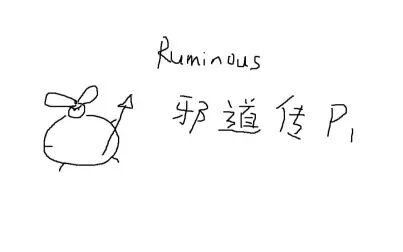 Ruminous
邪道传 P1